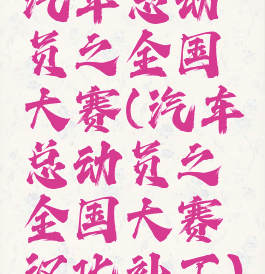 汽车总动
员之全国
大赛(汽车
总动员之
全国大赛
汉改补丁)